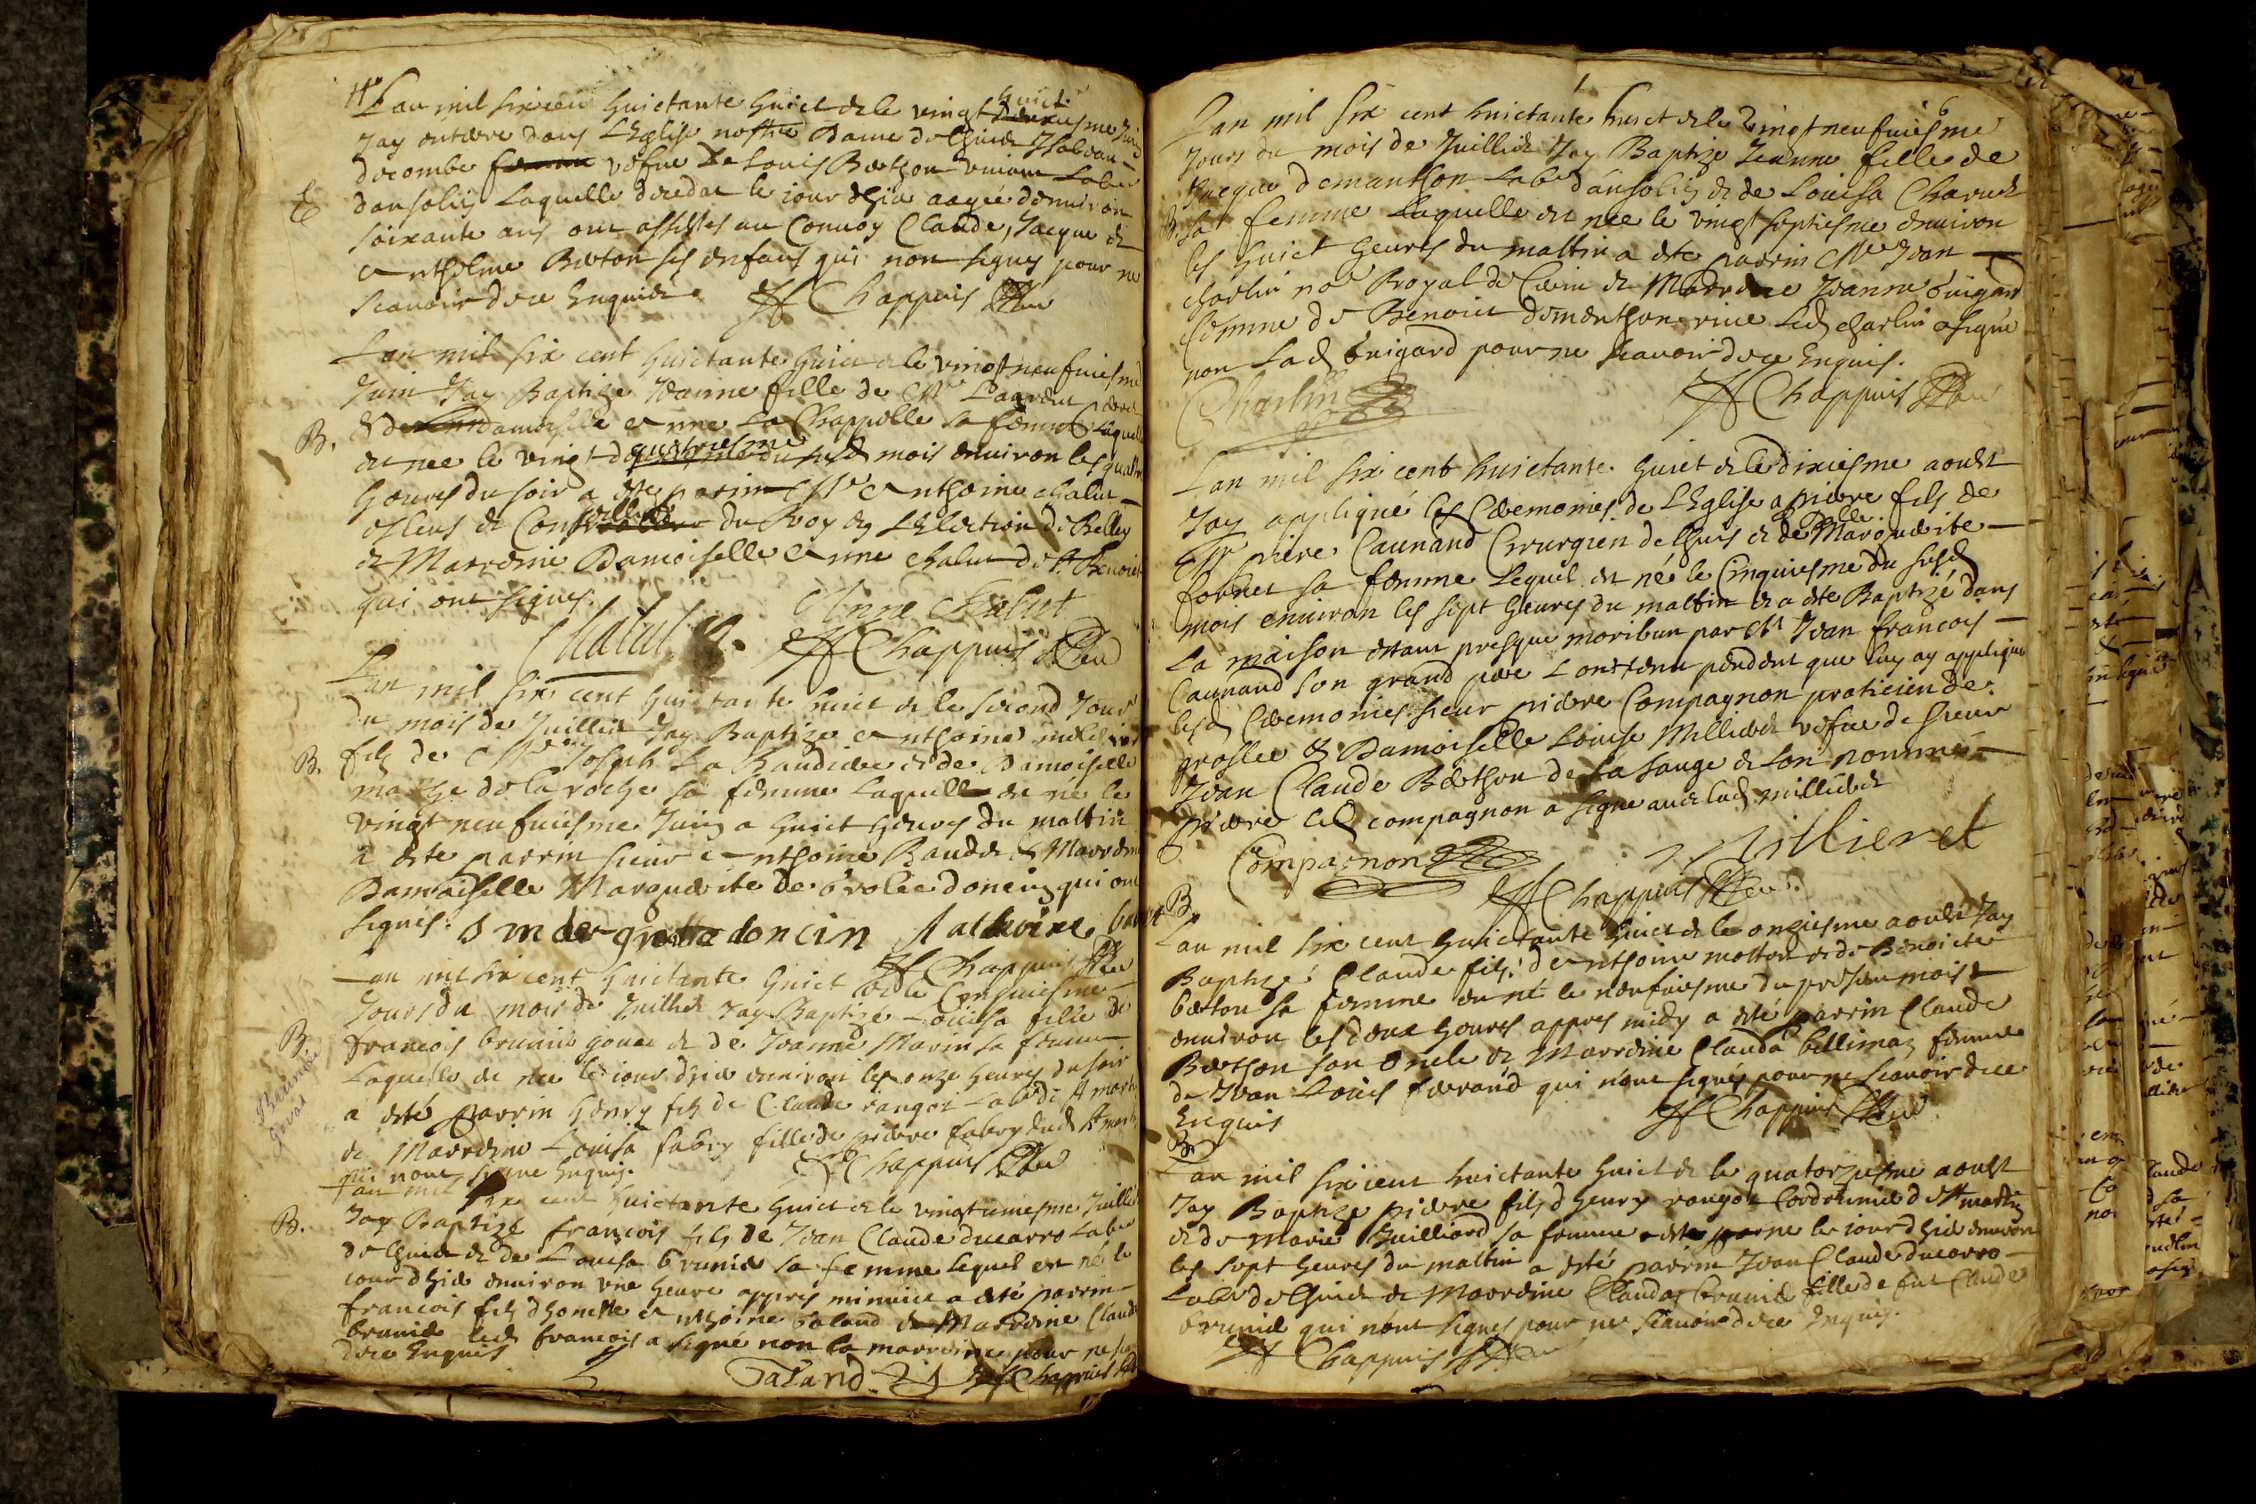 Lan mil six cens huictante huict et le vingt huict.
Jay enterre dans LEglise nostre Dame de Lhuis Isabeau
decombe femme vefve de Louis Berthon vivant Labr
dansolin Laquelle deceda le iour dhier aagee denviron
E
soixante ans ont assistes au Convoy Claude, Jacque et
Anthelme Berton ses enfans qui non signes pour ne
scavoir de ce Enquis. Chappuis
Lan mil six cent huictante huict et le vingt neufuiesme
Juin Jay Baptize Jeanne fille de Mr Laurent
et de damoiselle Anne La Chappelle sa femme Laquelle
B.
est nee le vingt quatriesme du susd mois environ les quattre
heures du soir a este parrin Mre Anthoine chalut
esleus et Conseiller du Roy en LElection de Belley
et Marrenie Damoiselle Anne chalut de St Benoist
qui ont signes.
Chalut Anne Chalut
Chappuis
Lan mil six cent huictante huict et le second Jour
du mois de Juillet Jay Baptize Anthoine
B.
filz de Mre Joseph La Baudiere et de Damoiselle
marthe de la roche sa femme Laquelle est ne le
vingt neufuiesme Juin a huict heures du mattin
a este parrin sieur Anthoine Baudet et Marrenie
Damoiselle Marguerite de Grolee doncin qui ont
signes. m de grollee doncin Anthoine
Chappuis
Lan mil six cent huictante huict et le Cinquiesme
Jours du mois de Juillet Jay Baptize Louisa fille de
B
francois brunier gouat et de Jeanne Marin sa femme
Brunier
gouat
Laquelle est nee le iour dhier environ les onze heures du soir
a esté parrin henry filz de Claude rangot Labr de St martin
et Marrenie Louisa fabry fille de pierre fabry dud St martin
qui nont signe Enquis. Chappuis
Lan mil six cent huictante huict et le vingtiemesme Juillet
B.
Jay Baptizé francois filz de Jean Claude ducarro Labr
de Lhuis et de Louisa brunier sa femme lequel est né le
iour dhier environ une heure appres minuict a esté parrin
francois filz dhoneste Anthoine Taland et Marrenie Claude
brunier led francois a signé non la marrenie pour ne scavoir
de ce Enquis
Taland Chappuis
Lan mil six cent huictante huict et le vingt neufuiesme
Jours du mois de Juillet Jay Baptize Jeanne fille de
Jacque demanthon Labr dansolin et de Louisa Charvet
B.
sa femme Laquelle est nee le vingt septiesme environ
les huict heures du mattin a este parrin Mre Jean
charlin nore Royal de Cerin et Marrenie Jeanne Guigard
femme de Benoict dementhon rive Led charlin a signé
non Lad Guigard pour ne scavoir de ce Enquis.
Charlin Chappuis
Lan mil six cent huictante huict et le dixiesme aoust
Jay appliqué les Ceremonies de LEglise a pierre fils de
Mre piere Caunand Cirurgien de Lhuis et de Delle Marguerite
fornet sa femme Lequel est né le Cinquiesme du susd
mois environ les sept heures du mattin et a este Baptizé dans
La maison estant presque moribun par Mr Jean francois
Caunand son grand pere Lont tenu pendent que luy ay applique
lesd Ceremonies sieur pierre Compagnon praticien de
groslee & Damoiselle Louise Millieret vefve de sieur
Jean Claude Berthon de La sauge et Lon nommé
pierre led compagnon a signe avec lad millieret
Compagnon Millieret
Chappuis
B
Lan mil six cent huictante huict et le onziesme aoust Jay
Baptizé Claude filz dAnthoine motton et de Benoicte
berton sa femme est né le neufuiesme du present mois
environ les deux heures appres midy a esté parrin Claude
Berthon son Oncle et Marrenie Clauda billimaz femme
de Jean Louis ferrand qui nont signés pour ne scavoir de ce
Enquis
Chappuis
B
Lan mil six cent huictante huict et le quatorziesme aoust
Jay Baptize pierre filz dhenry rangot Cordonnier de St martin
et de Marie Guilliard sa femme ne le iour dhier environ
les sept heures du mattin a esté parrin Jean Claude ducarro
Labr de Lhuis et Marrenie Clauda brunier fille de fut Claude
brunier qui nont signes pour ne scavoir de ce Enquis.
Chappuis